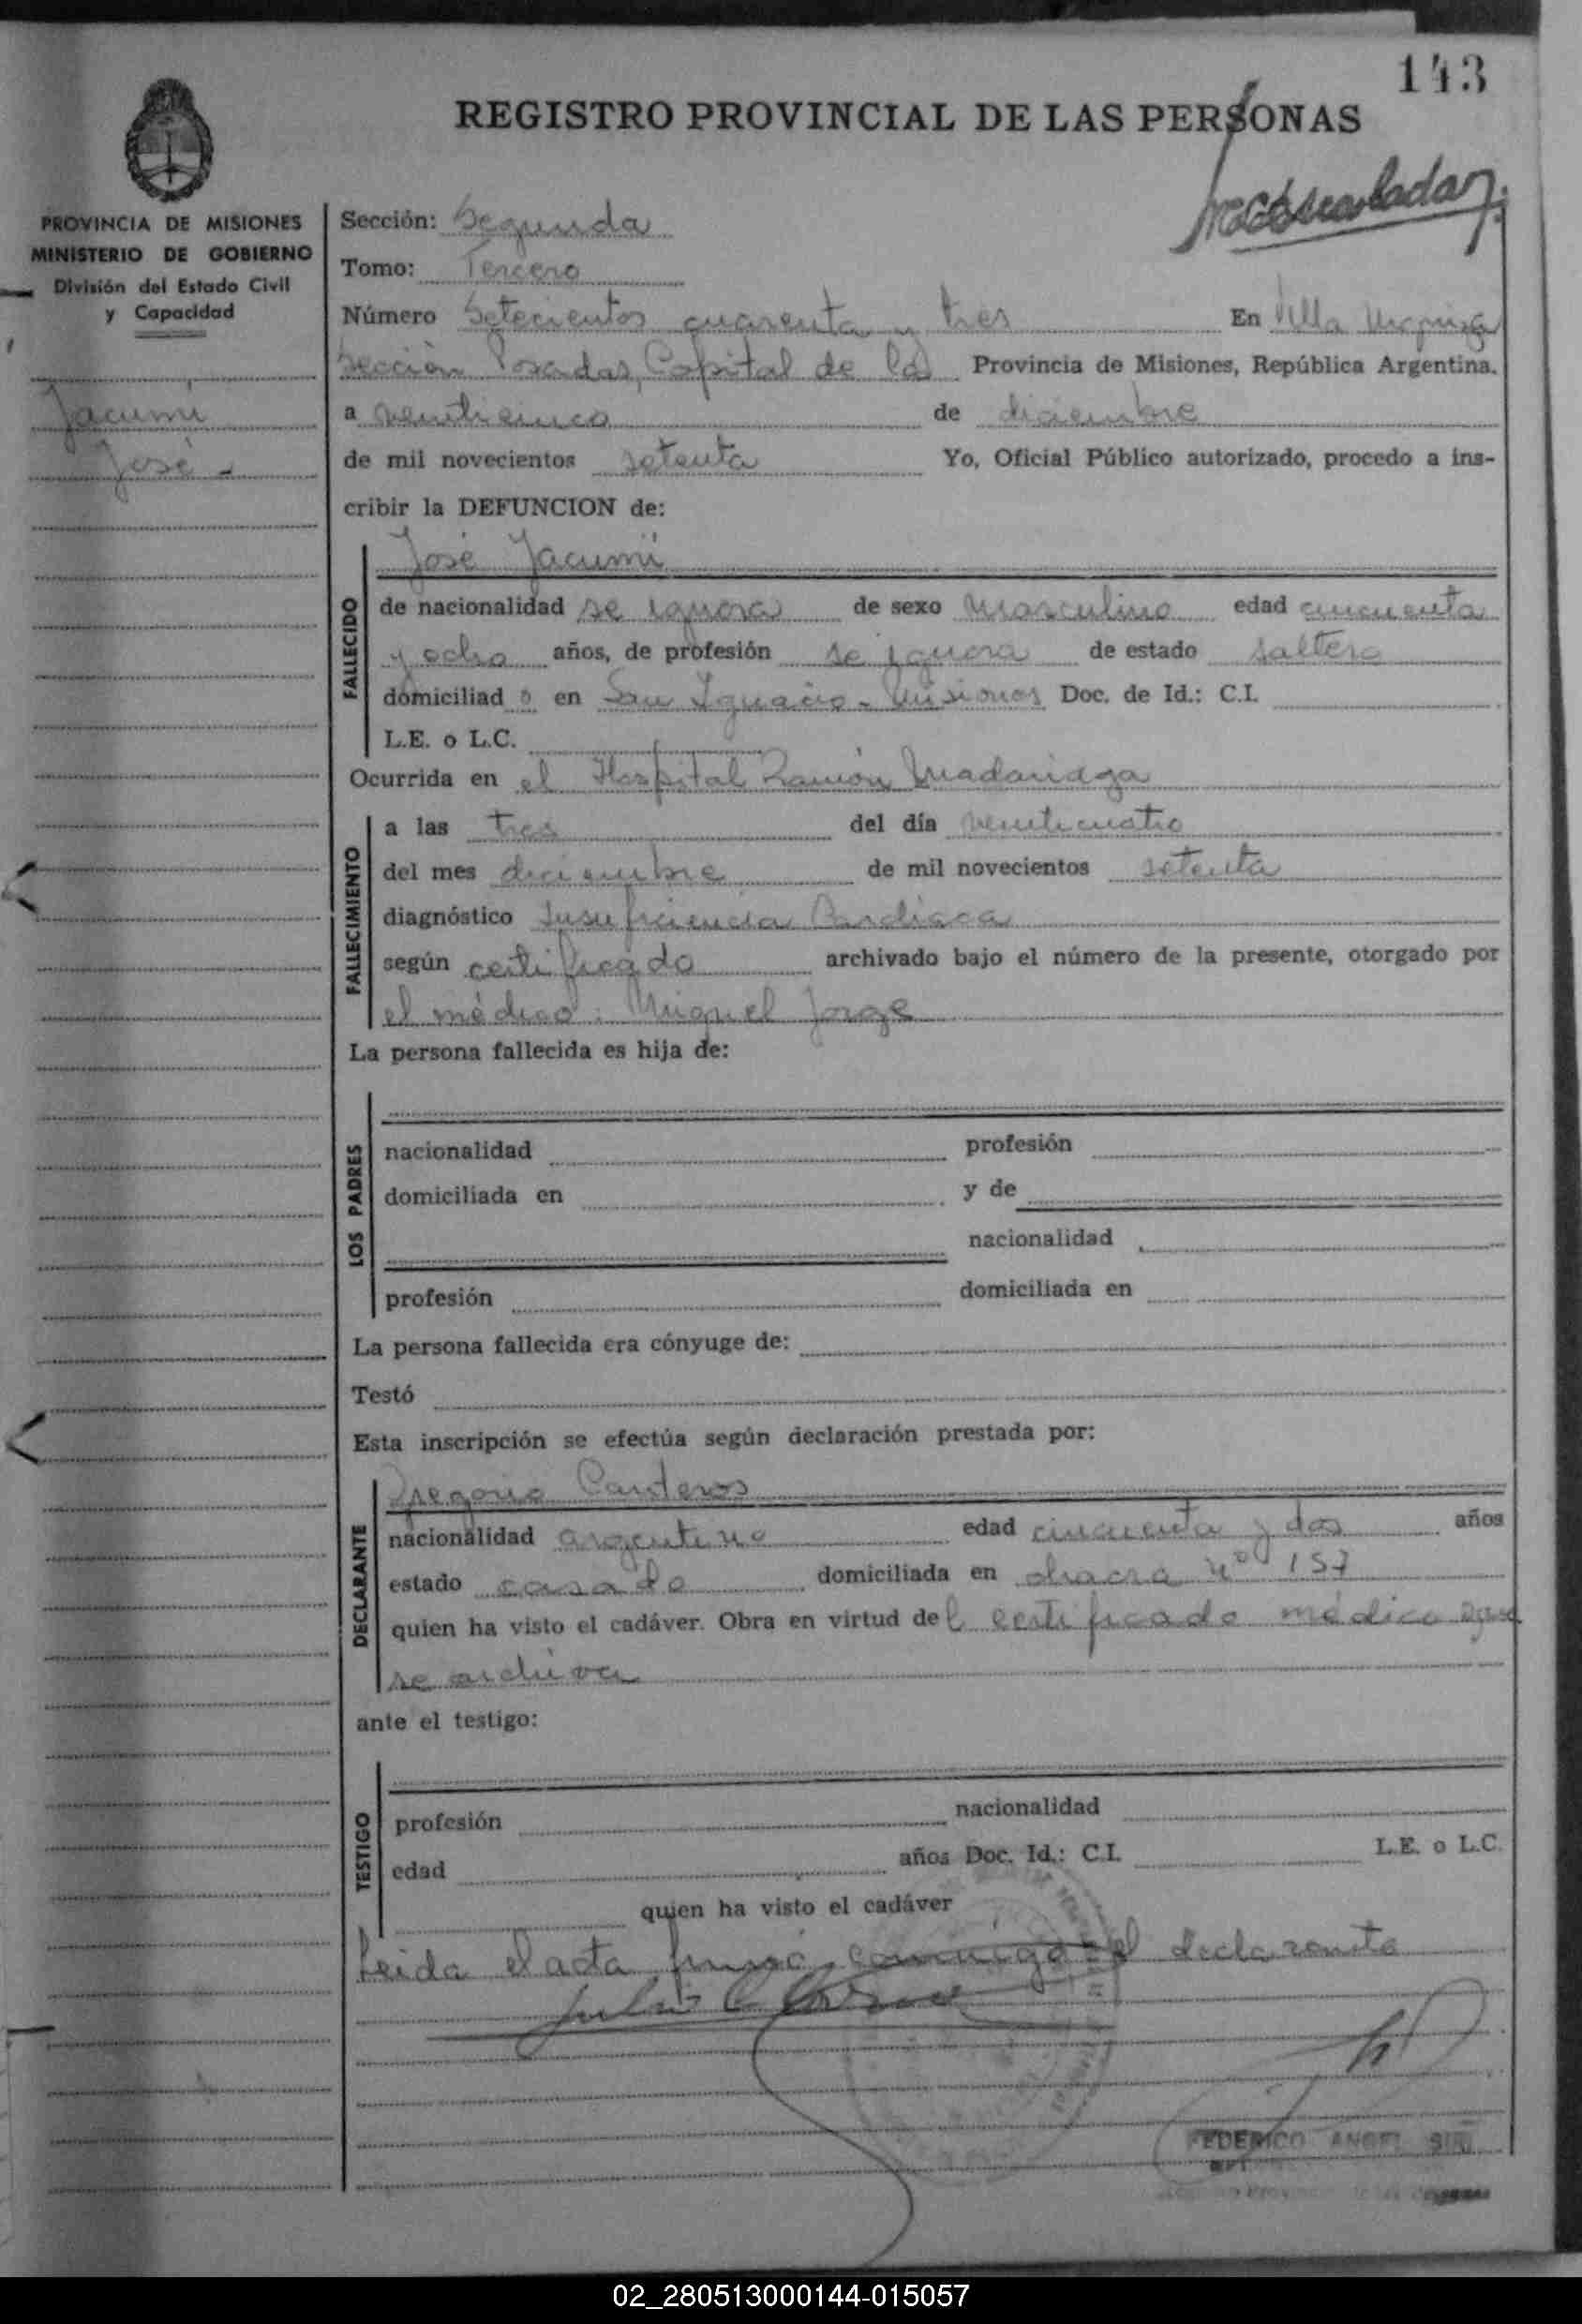 143
REGISTRO PROVINCIAL DE LAS PERSONAS
PROVINCIA DE MISIONES
MINISTERIO DE GOBIERNO
División del Estado Civil
y Capacidad
Jacumí
José
Sección: Segunda
Tomo: Tercero
Número Setecientos cuarenta y tres En Villa Urquiza
Sección Posadas, Capital de la Provincia de Misiones, República Argentina.
a veinticinco de diciembre
de mil novecientos setenta Yo, Oficial Público autorizado, procedo a ins-
cribir la DEFUNCION de:
José Jacumí
FALLECIDO
de nacionalidad se ignora de sexo masculino edad cincuenta
y ocho años, de profesión se ignora de estado soltero
domiciliado en San Ignacio - Misiones Doc. de Id.: C.I.
L.E. o L.C.
Ocurrida en el Hospital Ramón Madariaga
FALLECIMIENTO
a las tres del día veinticuatro
del mes diciembre de mil novecientos setenta
diagnóstico Insuficiencia Cardiaca
según certificado archivado bajo el número de la presente, otorgado por
el médico: Miguel Jorge
La persona fallecida es hija de:
LOS PADRES
nacionalidad profesión
domiciliada en y de
nacionalidad
profesión domiciliada en
La persona fallecida era cónyuge de:
Testó
Esta inscripción se efectúa según declaración prestada por:
Gregorio Canteros
DECLARANTE
nacionalidad argentino edad cincuenta y dos años
estado casado domiciliada en chacra nº 157
quien ha visto el cadáver. Obra en virtud del certificado médico que
se archiva
ante el testigo:
TESTIGO
profesión nacionalidad
edad años Doc. Id.: C.I. L.E. o L.C.
quien ha visto el cadáver
Leida el acta firmó conmigo el declarante
FEDERICO ANGEL
02_280513000144-015057